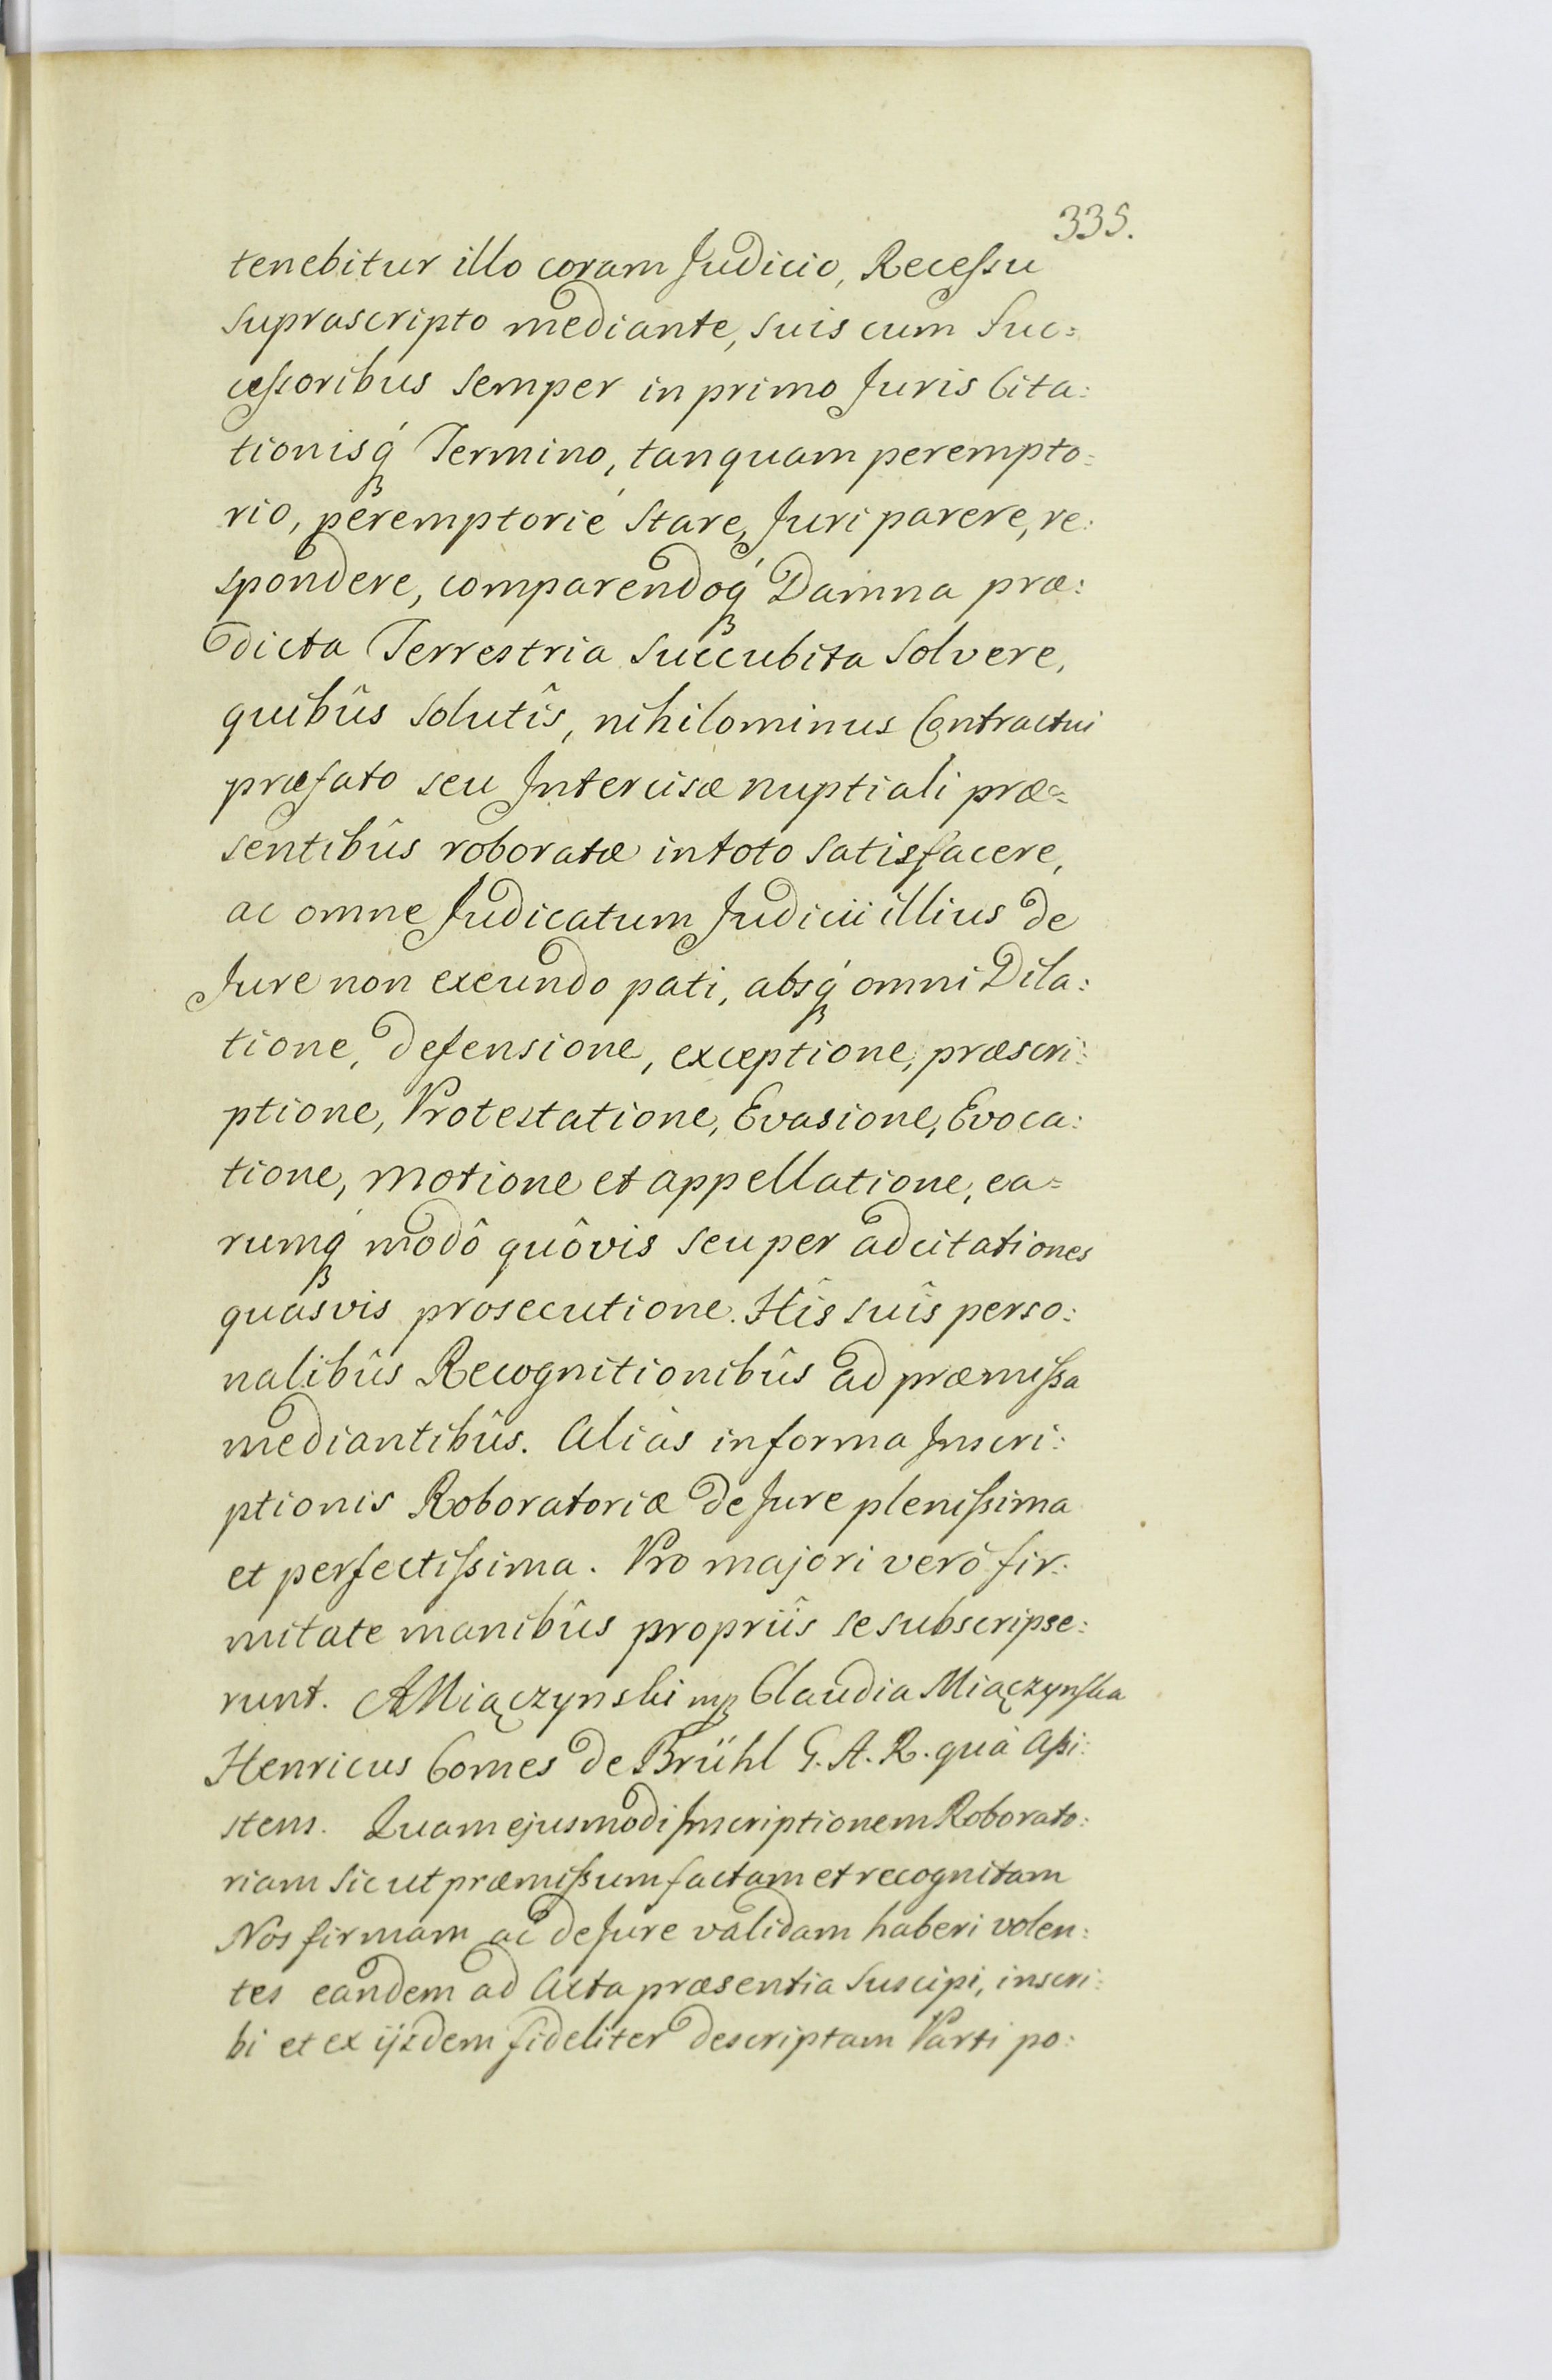 335.
tenebitur illo coram Judicio, Recessu
Suprascripto mediante, suis cum Suc=
cessoribus semper in primo Juris Cita:
tionisq́ Termino, tanquam perempto=
rio, peremptorié Stare, Juri parere, re:
spondere, comparendoq́ Damna præ:
dicta Terrestria Succubita Solvere,
quibûs Solutîs, nihilominus Contractui
præfato seu Intercisæ nuptiali præ=
sentibûs roboratæ in toto Satisfacere,
ac omne Judicatum Judicii illius de
Jure non exeundo pati, absq́ omni Dila:
tione, defensione, exceptione, præscri:
ptione, Protestatione, Evasione, Evoca:
tione, motione et appellatione, ea=
rumq́ modô quôvis seu per adcitationes
quasvis prosecutione. Hîs suîs perso:
nalibûs Recognitionibûs ad præmissa
mediantibûs. Aliàs in forma Inscri:
ptionis Roboratoriæ de Jure plenissima
et perfectissima. Pro majori verò fir:
mitate manibûs propriîs se subscripse:
runt. AMiączynski mp Claudia Miączynska
Henricus Comes de Brühl G. A. R. quà Assi:
stens. Quam ejusmodi Inscriptionem Roborato:
riam sicut præmissum factam et recognitam
Nos firmam ac de Jure validam haberi volen:
tes eandem ad Acta præsentia Suscipi, inscri:
bi et ex ijsdem fideliter descriptam Parti po: